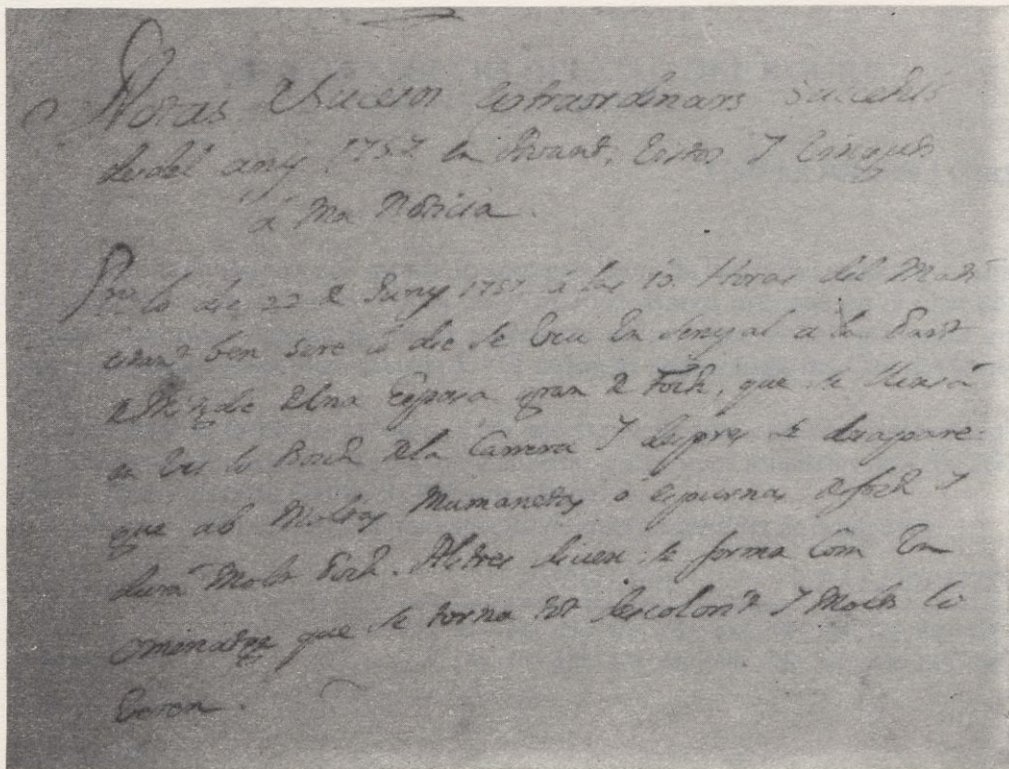 Notas de Sucesos extraordinars succehits
desdel any 1757 en Divant, Vistos y Vinguts
á Ma Noticia.
Pmo lo die 22 de Juny 1757 á las 10 Horas del Mati
estant ben sere lo die se veu un senyal a la Part
de de una Espasa gran de Foch, que se
en ves lo Bach de la Carrera y despres se desapare-
gue ab Moltas flumanetas o espurnas de foch y
durá Molt Poch. Altres diuen se forma Com un
omenatge que se torna tot descolorit y Molts lo
veren.